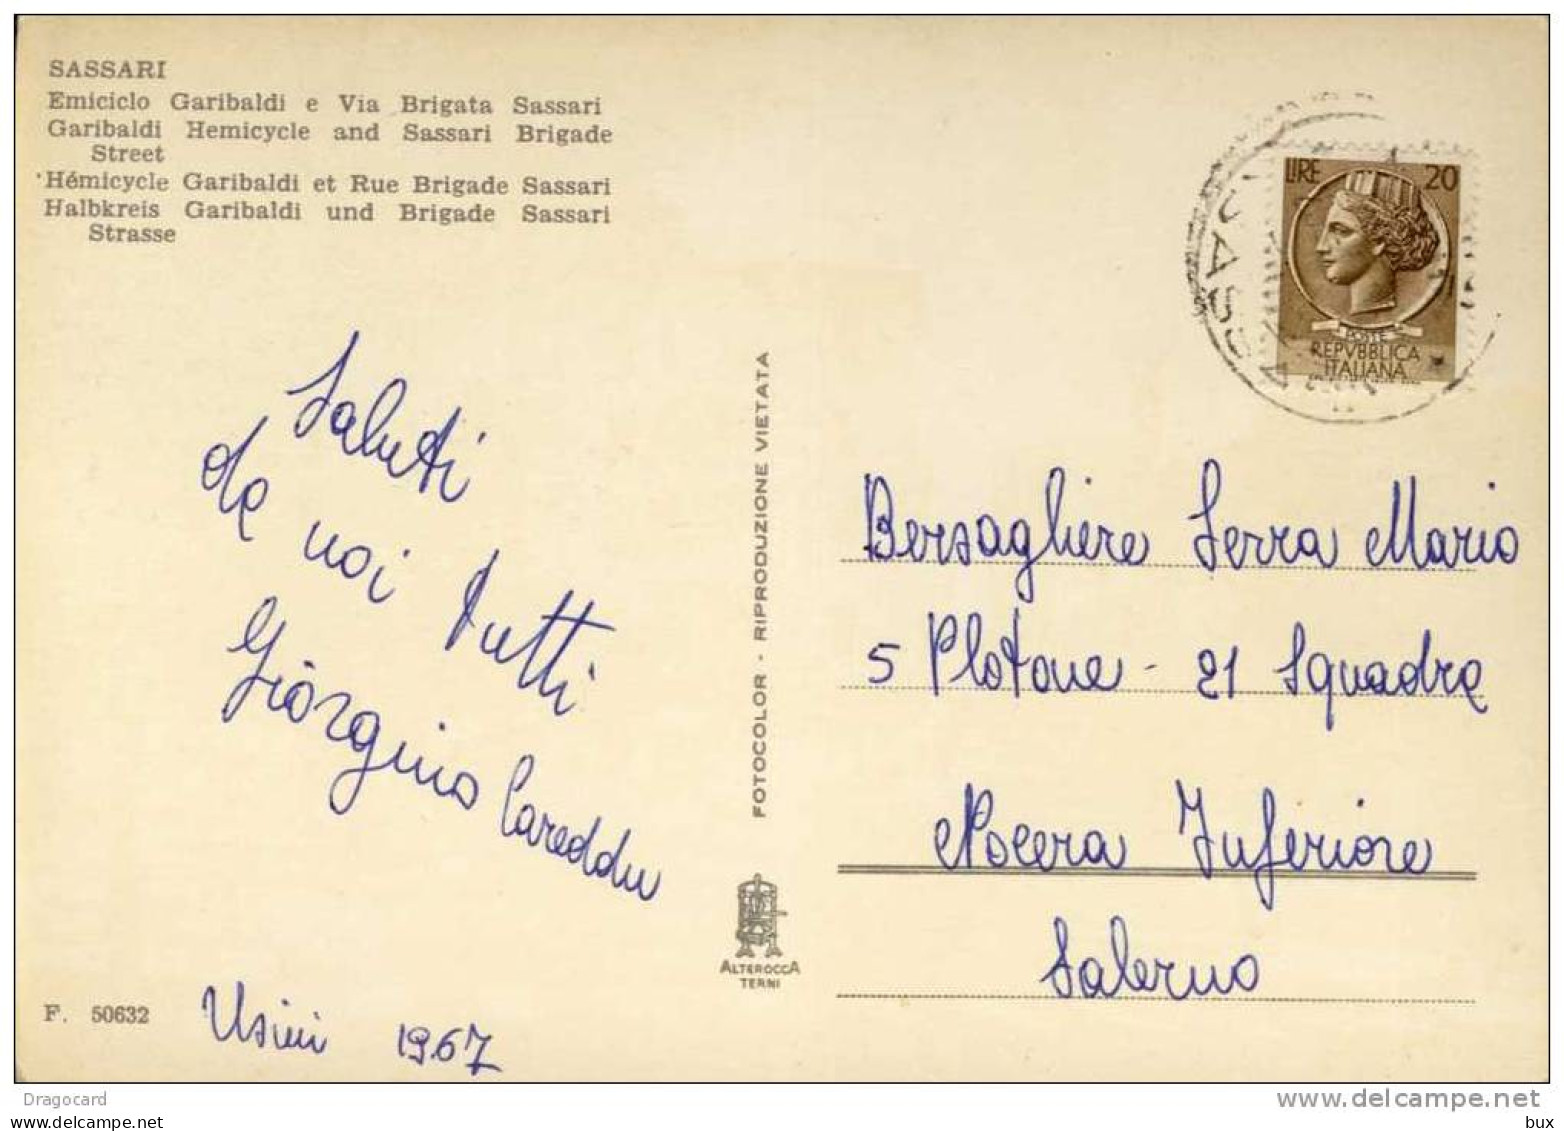 SASSARI
Emiciclo Garibaldi e Via Brigata Sassari
Garibaldi Hemicycle and Sassari Brigade
Street
Hémicycle Garibaldi et Rue Brigade Sassari
Halbkreis Garibaldi und Brigade Sassari
Strasse
LIRE 20
POSTE
REPVBBLICA
ITALIANA
SASSA
Saluti
da noi tutti
Giorgino Careddu
Usini 1967
F. 50632
FOTOCOLOR - RIPRODUZIONE VIETATA
ALTEROCCA
TERNI
Bersagliere Serra Mario
5 Plotone - 21 Squadra
Nocera Inferiore
Salerno
Dragocard
delcampe.net
bux